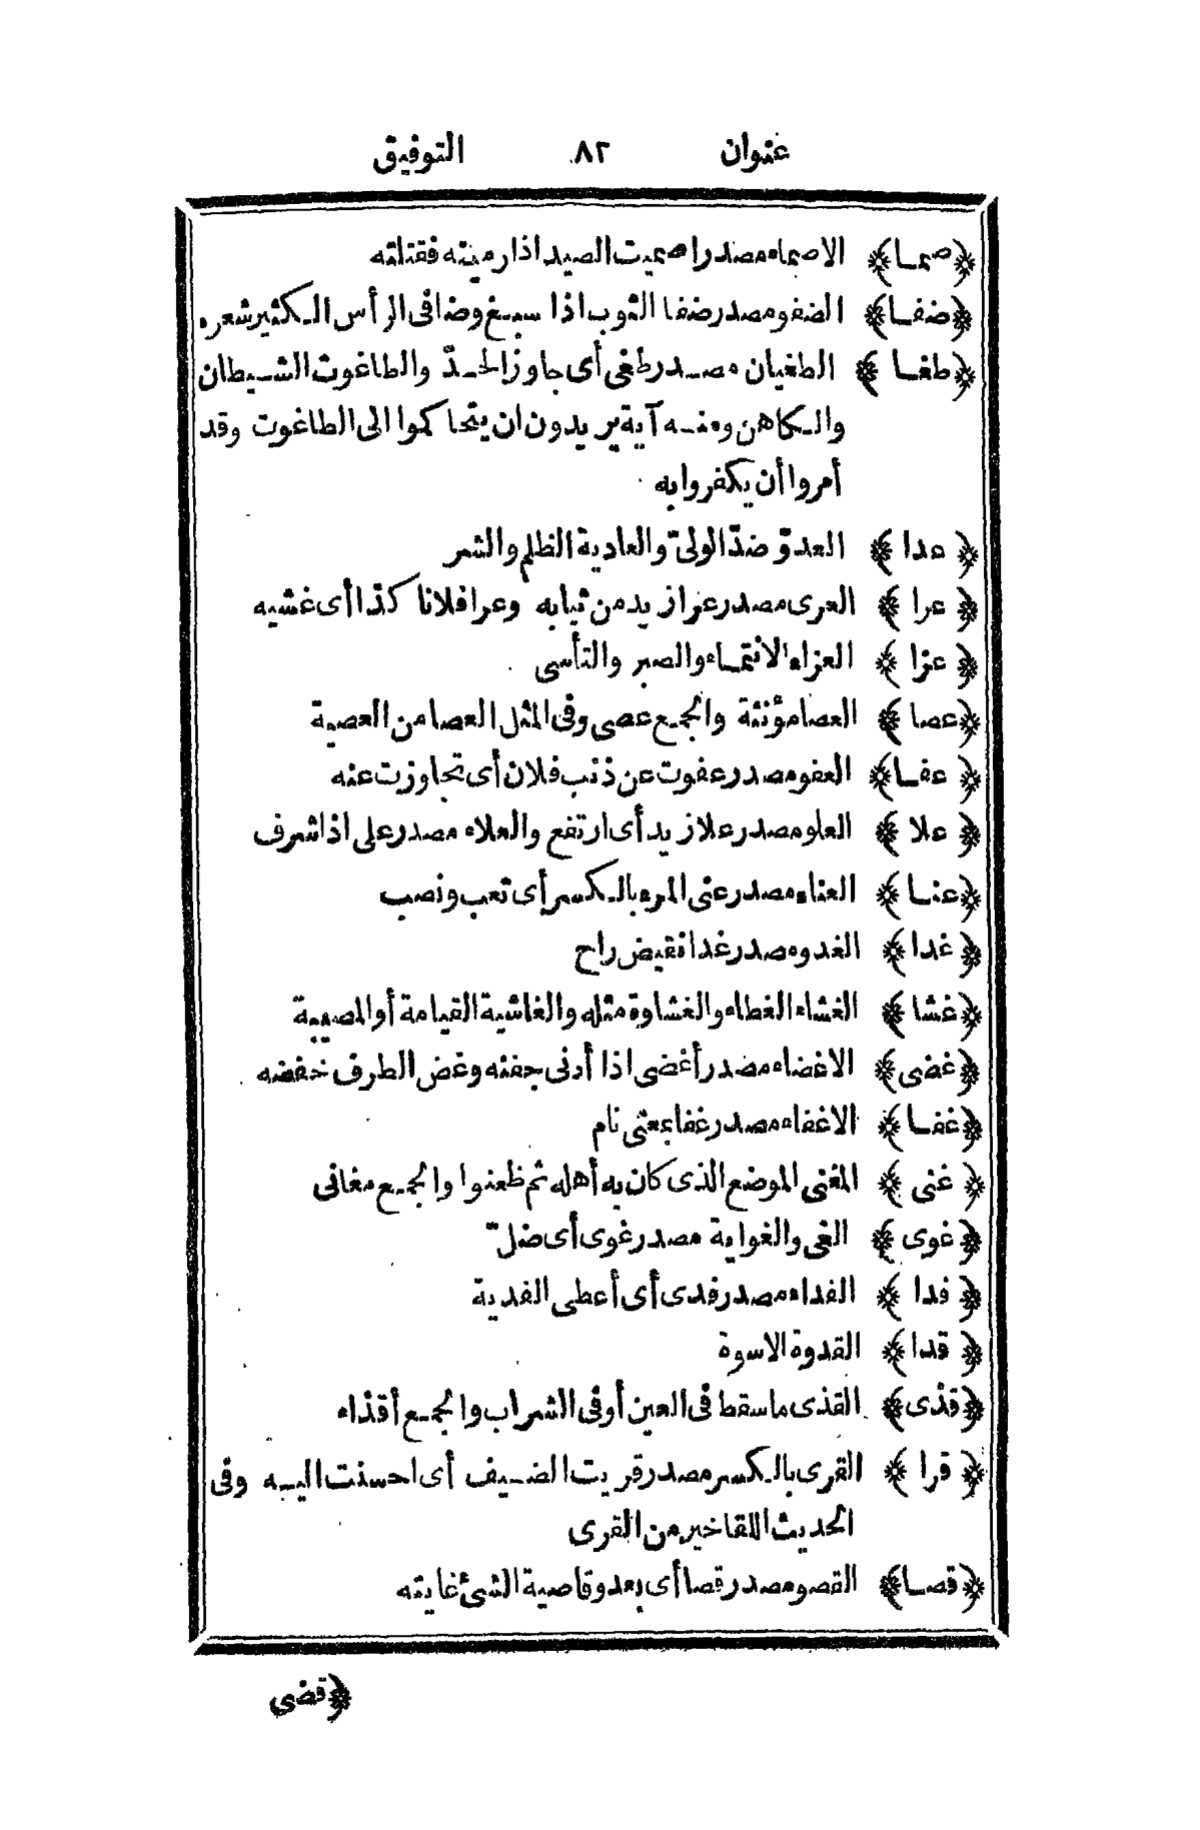 عنوان ٨٢ التوفيق
﴿صما﴾ الاصماء مصدر اصميت الصيد اذا رميته فقتلته
﴿ضفا﴾ الضفو مصدر ضفا الثوب اذا سبغ وضافى الرأس الكثير شعره
﴿طغا﴾ الطغيان مصدر طغى أى جاوز الحدّ والطاغوت الشيطان
والكاهن ومنه آية يريدون ان يتحاكموا الى الطاغوت وقد
أمروا أن يكفروا به
﴿عدا﴾ العدوّ ضدّ الولىّ والعادية الظلم والشر
﴿عرا﴾ العرى مصدر عرا زيد من ثيابه وعرا فلانا كذا أى غشيه
﴿عزا﴾ العزاء الانتماء والصبر والتأسى
﴿عصا﴾ العصا مؤنثة والجمع عصى وفى المثل العصا من العصية
﴿عفا﴾ العفو مصدر عفوت عن ذنب فلان أى تجاوزت عنه
﴿علا﴾ العلو مصدر علا زيد أى ارتفع والعلاء مصدر على اذا شرف
﴿عنا﴾ العناء مصدر عنى المرء بالكسر أى تعب ونصب
﴿غدا﴾ الغدو مصدر غدا نقيض راح
﴿غشا﴾ الغشاء الغطاء والغشاوة مثله والغاشية القيامة أو المصيبة
﴿غضى﴾ الاغضاء مصدر أغضى اذا أدنى جفنه وغض الطرف خفضه
﴿غفا﴾ الاغفاء مصدر غفا بمعنى نام
﴿غنى﴾ المغنى الموضع الذى كان به أهله ثم ظعنوا والجمع مغانى
﴿غوى﴾ الغى والغواية مصدر غوى أى ضلّ
﴿فدا﴾ الفداء مصدر فدى أى أعطى الفدية
﴿قدا﴾ القدوة الاسوة
﴿قذى﴾ القذى ما سقط فى العين أو فى الشراب والجمع أقذاء
﴿قرا﴾ القرى بالكسر مصدر قريت الضيف أى احسنت اليه وفى
الحديث اللقا خير من القرى
﴿قصا﴾ القصو مصدر قصا أى بعد وقاصية الشئ غايته
﴿قضى